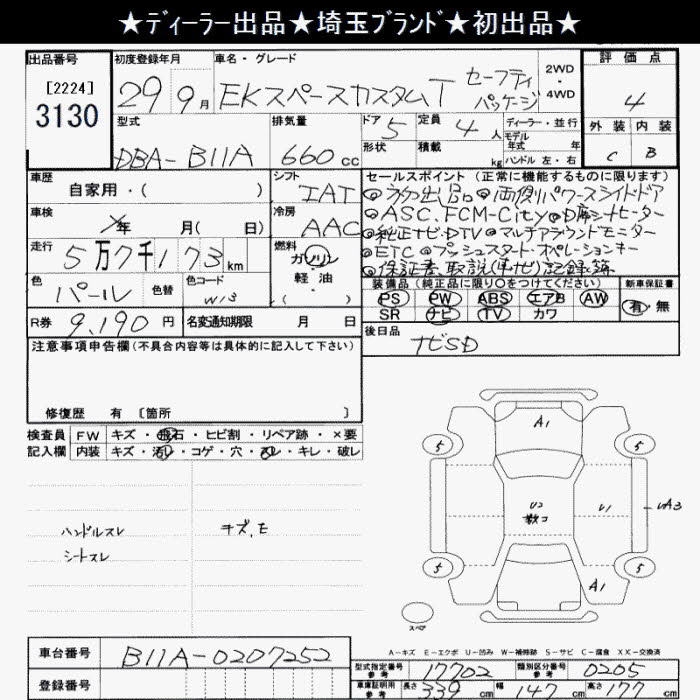 ★ディーラー出品★埼玉ブランド★初出品★
出品番号
[2224]
3130
初度登録年月
29 9月
車名・グレード
EKスペースカスタムT セーフティパッケージ
2WD
・
4WD
評価点
4
外装 内装
C B
型式
DBA-B11A
排気量
660 cc
ドア 5
形状
定員 4 人
積載 kg
ディーラー・並行
モデル年式 年
ハンドル 左・右
車歴
自家用・( )
シフト
IAT
セールスポイント (正常に機能するものに限ります)
◎初出品◎両側パワースライドドア
◎ASC.FCM-City◎D席シートヒーター
◎純正ナビ・DTV◎マルチアラウンドモニター
◎ETC◎プッシュスタート・オペレーションキー
◎保証書、取説(車ナビ)記録簿
車検
年 月( 日)
冷房
AAC
走行
5万7千173km
燃料
ガソリン
・
軽油
( )
色
パール
色替
色コード
W13
装備品 (純正品に限り○をつけてください)
PS PW ABS エアB AW
SR ナビ TV カワ
新車保証書
有・無
R券
9,190 円
名変通知期限 月 日
後日品
ナビSD
注意事項申告欄 (不具合内容等は具体的に記入して下さい)
修復歴 有 〔箇所 〕
検査員
記入欄
FW キズ・飛石・ヒビ割・リペア跡・×要
内装 キズ・汚レ・コゲ・穴・スレ・キレ・破レ
ハンドルスレ
シートスレ
キズ、E
A1
5
5
U2
数コ
U1
UA3
5
5
A1
スペア
A-キズ E-エクボ U-凹み W-補修跡 S-サビ C-腐食 XX-交換済
車台番号
B11A-0207252
登録番号
型式指定番号
参考
17702
類別区分番号
参考
0205
車庫証明用
参考
長さ 339 cm
幅 147 cm
高さ 177 cm